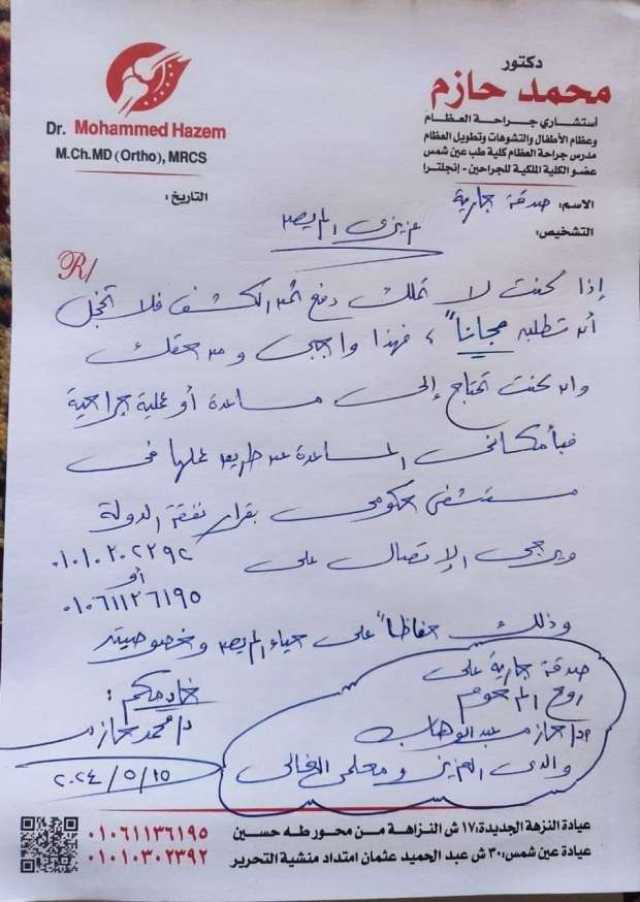 دكتور
محمد حازم
أستشاري جراحة العظام
وعظام الأطفال والتشوهات وتطويل العظام
مدرس جراحة العظام كلية طب عين شمس
عضو الكلية الملكية للجراحين - إنجلترا
Dr. Mohammed Hazem
M.Ch.MD (Ortho), MRCS
الاسم: صدقة جارية
التاريخ:
التشخيص:
عزيزى المريض
R/
إذا كنت لا تملك دفع ثمن الكشف فلا تخجل
أن تطلبه مجاناً، فهذا واجبى ومن حقك
وإن كنت تحتاج إلى مساعدة أو عملية جراحية
فبأمكانى المساعدة عن طريق عملها فى
مستشفى حكومى بقرار نفقة الدولة
ويرجى الإتصال على ٠١٠١٠٣٠٢٣٩٢
أو
٠١٠٦١١٣٦١٩٥
وذلك حفاظاً على حياء المريض وخصوصيته
صدقة جارية على
روح المرحوم
أد/ حازم عبد الوهاب
والدى العزيز ومعلمى الغالى
خادمكم:
د/ محمد حازم
٢٠٢٤/٥/١٥
عيادة النزهة الجديدة: ١٧ ش النزاهة من محور طه حسين ٠١٠٦١١٣٦١٩٥
عيادة عين شمس: ٣٠ ش عبد الحميد عثمان امتداد منشية التحرير ٠١٠١٠٣٠٢٣٩٢